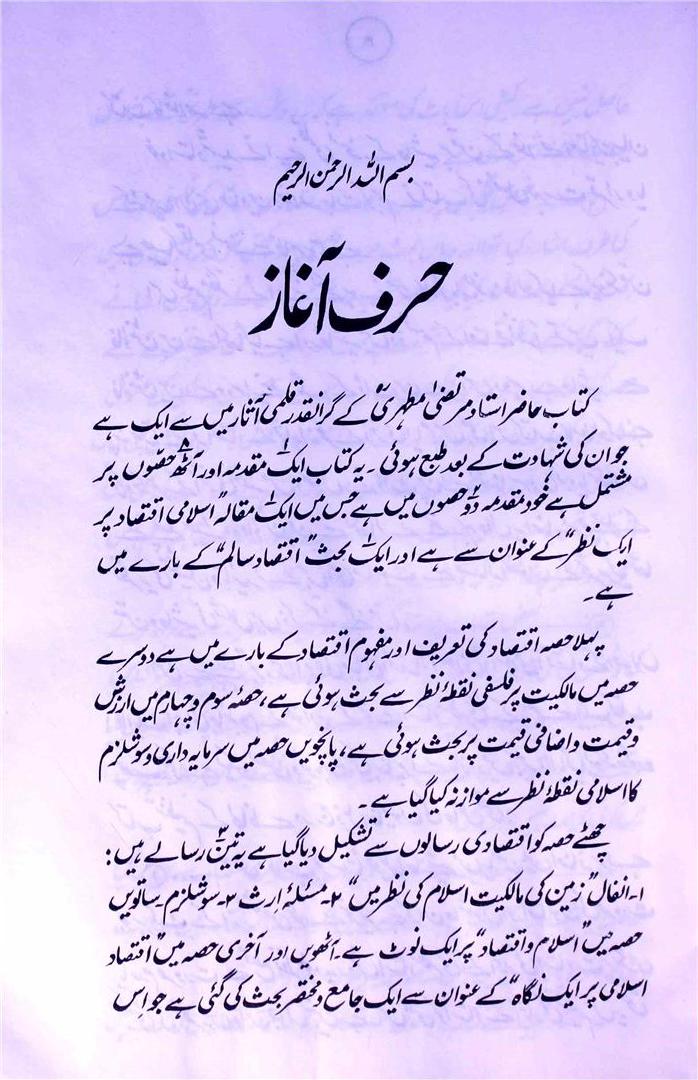 بسم اللہ الرحمٰن الرحیم
حرف آغاز
کتاب حاضر استاد مرتضیٰ مطہریؒ کے گرانقدر قلمی آثار میں سے ایک ہے
جو ان کی شہادت کے بعد طبع ہوئی ۔ یہ کتاب ایک مقدمہ اور آٹھ ۸ حصّوں پر
مشتمل ہے خود مقدمہ دو ۲ حصوں میں ہے جس میں ایک مقالہ "اسلامی اقتصاد پر
ایک نظر" کے عنوان سے ہے اور ایک بحث "اقتصاد سالم" کے بارے میں
ہے ۔
پہلا حصہ اقتصاد کی تعریف اور مفہوم اقتصاد کے بارے میں ہے دوسرے
حصہ میں مالکیت پر فلسفی نقطۂ نظر سے بحث ہوئی ہے ، حصۂ سوم و چہارم میں ارزش
و قیمت و اضافی قیمت پر بحث ہوئی ہے ، پانچویں حصہ میں سرمایہ داری و سوشلزم
کا اسلامی نقطۂ نظر سے موازنہ کیا گیا ہے ۔
چھٹے حصہ کو اقتصادی رسالوں سے تشکیل دیا گیا ہے یہ تین ۳ رسالے ہیں :
۱۔ انفال "زمین کی مالکیت اسلام کی نظر میں" ۲۔ مسئلۂ ارث ۳۔ سوشلزم ۔ ساتویں
حصہ میں "اسلام و اقتصاد" پر ایک نوٹ ہے ۔ آٹھویں اور آخری حصہ میں "اقتصاد
اسلامی پر ایک نگاہ" کے عنوان سے ایک جامع و مختصر بحث کی گئی ہے جو اس